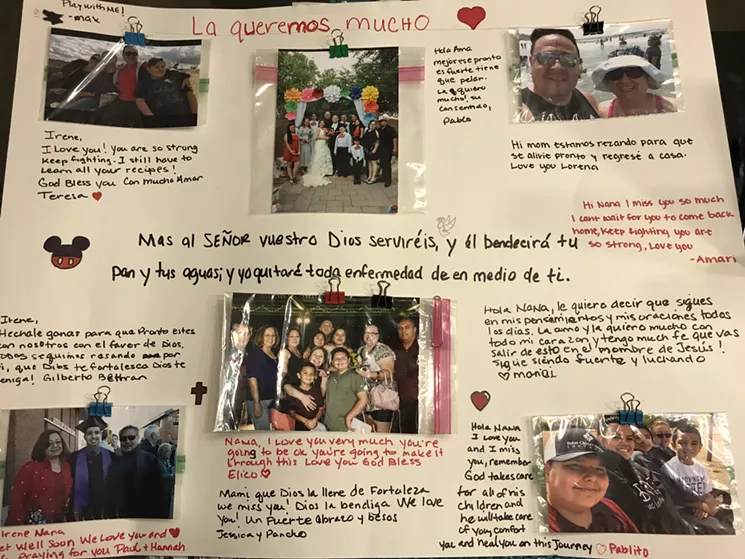 Play with ME!
-max
La queremos mucho
Irene,
I Love you! you are so strong
keep fighting. I still have to
learn all your recipes!
God Bless you Con mucho Amor
Teresa
Hola Ana
mejorese pronto
es fuerte tiene
que pelar.
La quiero
mucho! su
consentido,
Pablo
Hi mom estamos rezando para que
se alivie pronto y regresé a casa.
Love you Lorena
Hi Nana I miss you so much
I cant wait for you to come back
home, keep fighting you are
so strong, Love you
-Amari
Mas al SEÑOR vuestro Dios serviréis, y él bendecirá tu
pan y tus aguas; y yo quitaré toda enfermedad de en medio de ti.
Irene,
Hechale ganas para que pronto estes
con nosotros con el favor de Dios.
todos seguimos resando por
ti, que Dios te fortalesca Dios te
Gilberto Beltran
Hola NANA, le quiero decir que sigues
en mis pensamientos y mis oraciones todos
los dias. La amo y la quiero mucho con
todo mi carazon y tengo mucho fe que vas
salir de esto en el nombre de Jesús!
Sigue siendo fuerte y luchando
Nana, I Love you very much you're
going to be ok you're going to make it
through this Love you God Bless
Elico
Mami que Dios la llene de Fortaleza
we miss you! Dios la bendiga We love
you! Un Fuerte abrazo y besos
Jessica y Pancho
Hola NANA
I Love you
and I miss
you, remember
God takes care
for all of his
children and
he will take care
of you, comfort
you and heal you on this Journey Pablito
Irene Nana
Get Well Soon We Love you and
praying for you Paul + Hannah